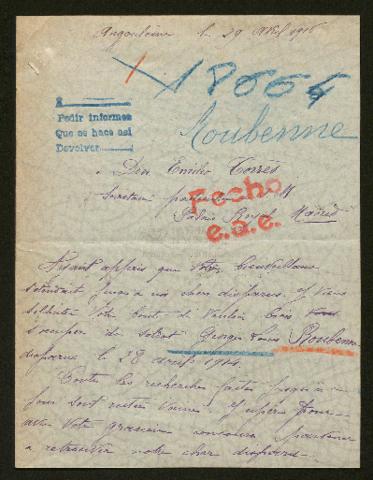 Angoulême le 29 Avril 1916
18664
Roubenne
Pedir informes
Que se hace asi
Devolver
à Don Emilio Torrès
Secretaire particulier de S. M
Palais Royal Madrid
Fecho
e.a.e.
Ayant appris que Votre bienveillance
s'étendait jusqu'à nos chers disparus, je viens
solliciter Votre bonté de Vouloir bien
s'occuper du soldat Georges Louis Roubenne
disparu le 28 août 1914.
Toutes les recherches faites jusqu'à ce
jour sont restées vaines. J'espère pour
avec Votre gracieux concours parvenir
à retrouver notre cher disparu